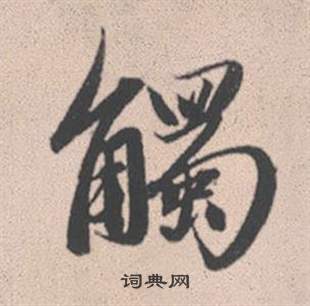 觸
词典网